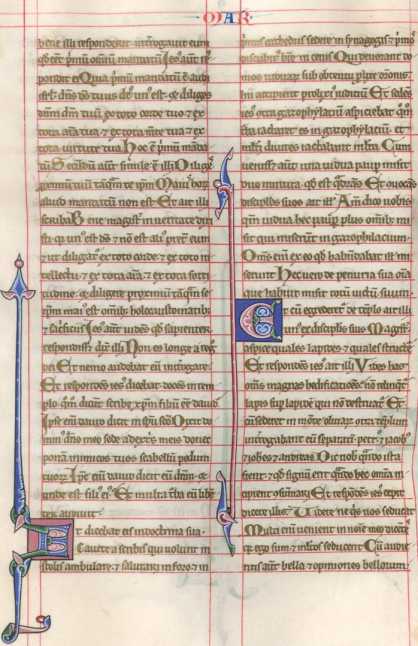 MAR
bene illi responderit interrogavit eum
q̄d eēt p̄mū oīum mandatū Jes᷒ aūt r̄s
pondit ei Quia p̄mū mandatū ē audi
isr̄l dn̄s ds̄ tuus ds̄ un᷒ est ⁊ diliges
dūm dm̄ tuū ex toto corde tuo ⁊ ex
tota aīa tua ⁊ ex tota mēte tua ⁊ ex
tota virtute tua Hoc ē p̄mū māda
tū Secūdū aūt simile ē illi Diliges
proximū tuū tāq̄m te ip̄m Maius hoꝝ
aliud mandatū non est Et ait illi
scriba Bene magist̄ in veritate dixi
sti q̄ un᷒ est ds̄ ⁊ nō est ali᷒ p̄ter eum
⁊ ut diligat᷒ ex toto corde ⁊ ex toto in
tellectu ⁊ ex tota aīa ⁊ ex tota forti
tudine ⁊ diligere proximū tāq̄m se
ip̄m mai᷒ est omīb᷒ holocaustomatib᷒
⁊ sacrificiis Jes᷒ aūt videns q̄d sapienter
respondisset dix̄ illi Non es longe a regno
dei Et nemo audebat eū interrogare
Et respondens ies᷒ dicebat docens in tem
plo Q̄m dicūt scribe xp̄m filiū eē david
Ip̄e eni david dicit in sp̄u sc̄o Dixit do
min᷒ dn̄o meo sede a dextris meis donec
ponā inimicos tuos scabellū pedum
tuoꝝ Ip̄e ḡ david dicit eū dn̄m ⁊
unde est fili᷒ ei᷒ Et multa t̄ba eū libē
ter audivit
Et dicebat eis in doctrina sua
Cavete a scribis qui volunt in
stolis ambulare ⁊ salutari in foro ⁊ in
primis cathedris sedere in synagogis ⁊ p̄mos
discubit᷒ in cenis Qui devorant do
mos viduaꝝ sub obtentu prolixe orationis
hii accipient prolixi᷒ iudiciū Et sedens
ies᷒ contra gazophylaciū aspiciebat q̄m̄
t̄ba iactaret es in gazophylaciū ⁊
multi divites iactabant multa Cum
venisset aūt una vidua paup̄ misit
duo minuta q̄d est q̄drās Et convocās
discipulos suos ait illis Am̄ dico vobis
qm̄ vidua hec paup̄ plus omīb᷒ mi
sit qui miserunt in gazophilacium
Om̄s eni ex eo q̄d habūdabat illis mi
serunt Hec vero de penuria sua oīa
que habuit misit totum victū suum
Et cum egrederet᷒ de templo ait illi
unus ex discipulis suis Magist̄
aspice quales lapides ⁊ quales structure
Et respondens ies᷒ ait illi Vides has
om̄s magnas hedificationes nō relinquet᷒
lapis sup̄ lapidē qui nō destruat᷒ Et
cū sederet in mōte olivaꝝ contra templum
interrogabant eū separatī petr᷒ ⁊ iacob᷒
⁊ iohēs ⁊ andreas Dic nobis q̄n̄ ista
fient ⁊ q̄d signū erit q̄n̄ hec omīa in
cipient consūmari Et respōdens ies᷒ cepit
dicere illis Videte ne q̄s vos seducat
Multi eni venient in noīe meo dicentes
q̄ ego sum ⁊ multos seducent Cū audie
ritis aūt bella ⁊ opiniones bellorum